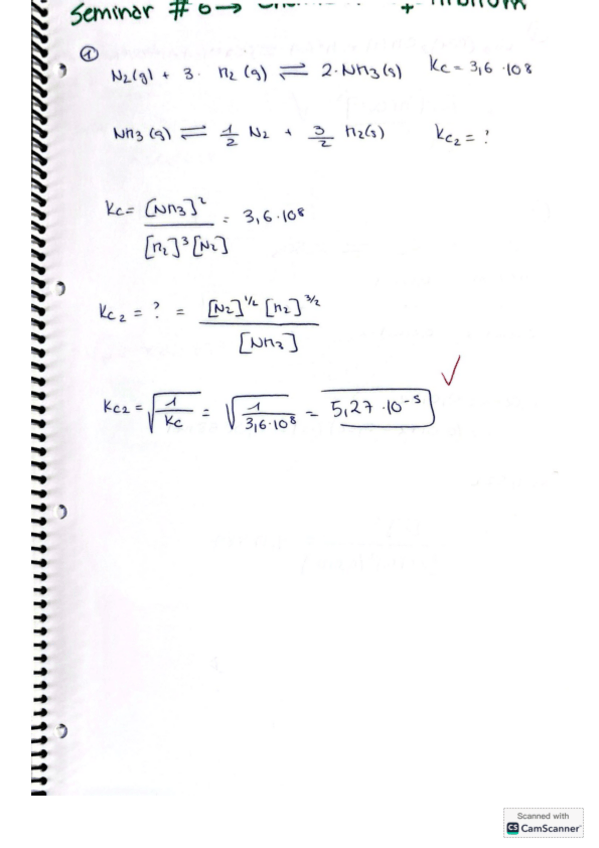 Seminar # 6 →
①
N₂(g) + 3 · H₂(g) ⇌ 2·NH₃(g) Kc = 3,6 · 10⁸
NH₃(g) ⇌ 1/2 N₂ + 3/2 H₂(g) Kc₂ = ?
Kc = [NH₃]² / [H₂]³[N₂] = 3,6·10⁸
Kc₂ = ? = [N₂]^1/2 [H₂]^3/2 / [NH₃]
Kc₂ = √(1/Kc) = √(1/3,6·10⁸) = 5,27 ·10⁻⁵ ✓
Scanned with
CS CamScanner